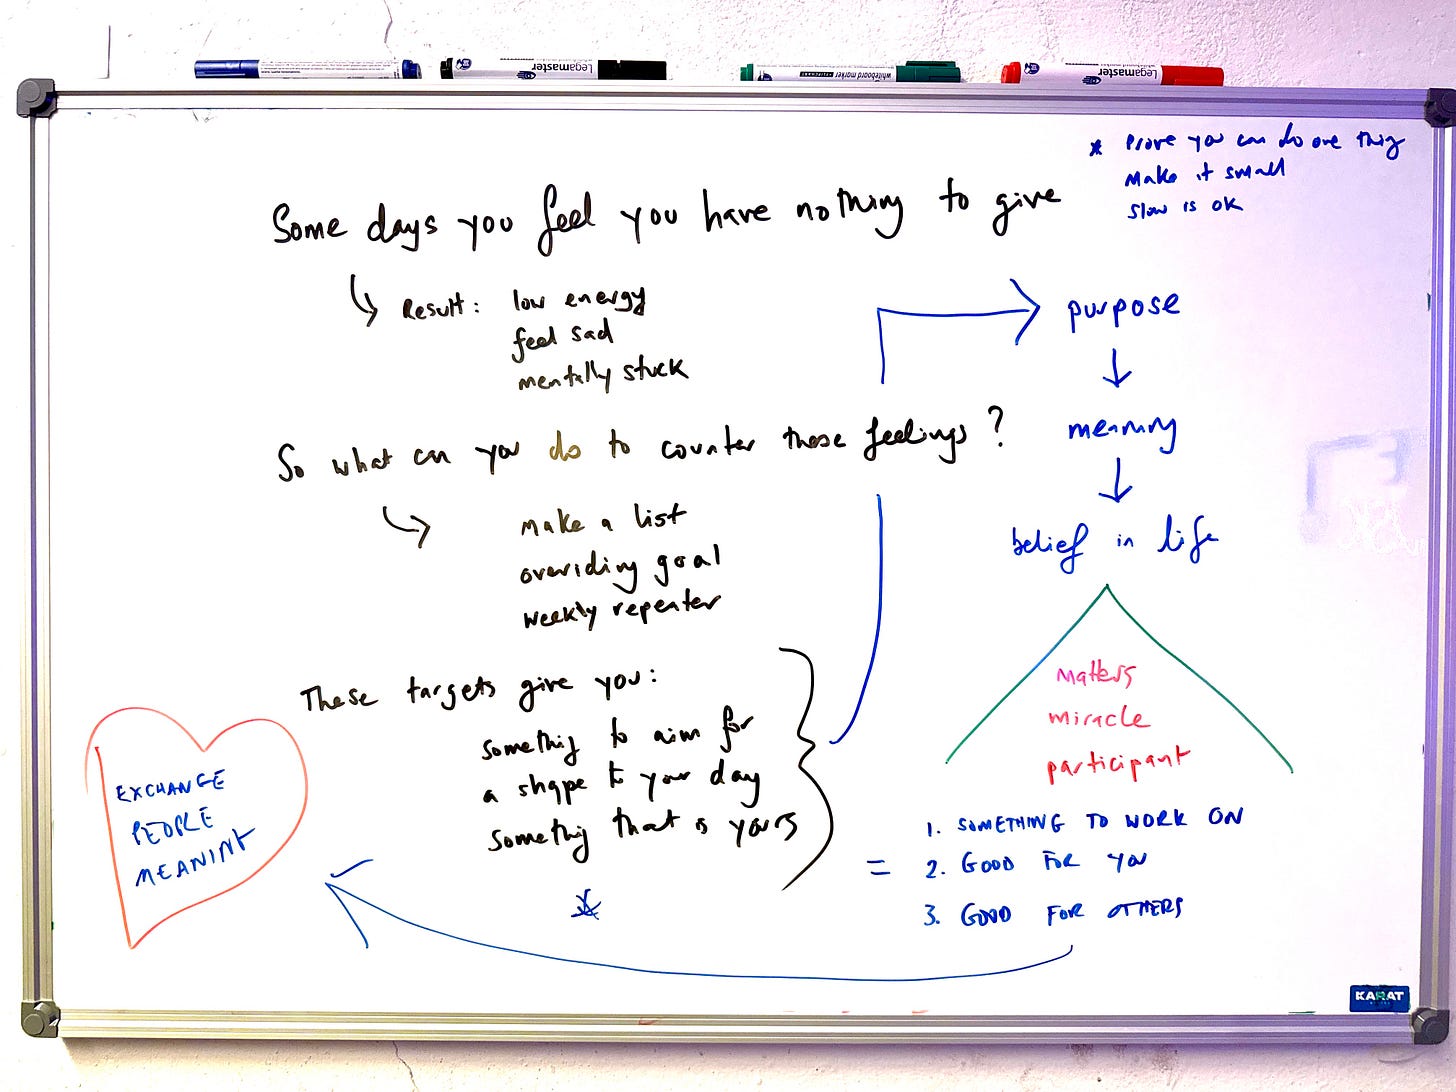 Legamaster
Legamaster
whiteboard marker
Legamaster
* Prove you can do one thing
Make it small
Slow is OK
Some days you feel you have nothing to give
Result: low energy
feel sad
mentally stuck
So what can you do to counter these feelings?
make a list
overiding goal
weekly repeater
These targets give you:
something to aim for
a shape to your day
something that is yours
*
purpose
meaning
belief in life
matters
miracle
participant
= 1. SOMETHING TO WORK ON
2. GOOD FOR YOU
3. GOOD FOR OTHERS
EXCHANGE
PEOPLE
MEANING
KARAT